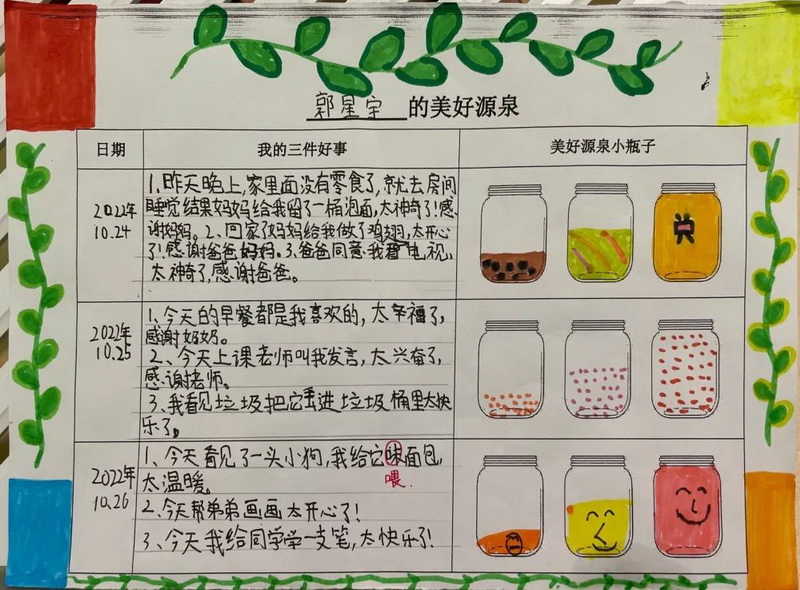 郭星宇 的美好源泉
日期
我的三件好事
美好源泉小瓶子
2022年
10.24
1.昨天晚上,家里面没有零食了,就去房间
睡觉结果妈妈给我留了一桶泡面,太神奇了!感
谢妈妈。2、回家了妈妈给我做了鸡翅,太开心
了!感谢爸爸妈妈。3.爸爸同意我看电视,
太神奇了,感谢爸爸。
2022年
10.25
1、今天的早餐都是我喜欢的,太幸福了,
感谢奶奶。
2、今天上课老师叫我发言,太兴奋了,
感谢老师。
3、我看见垃圾把它丢进垃圾桶里太快
乐了。
2022年
10.26
1、今天看见了一头小狗,我给它面包,
喂
太温暖
2、今天帮弟弟画画太开心了!
3、今天我给同学学一支笔,太快乐了!